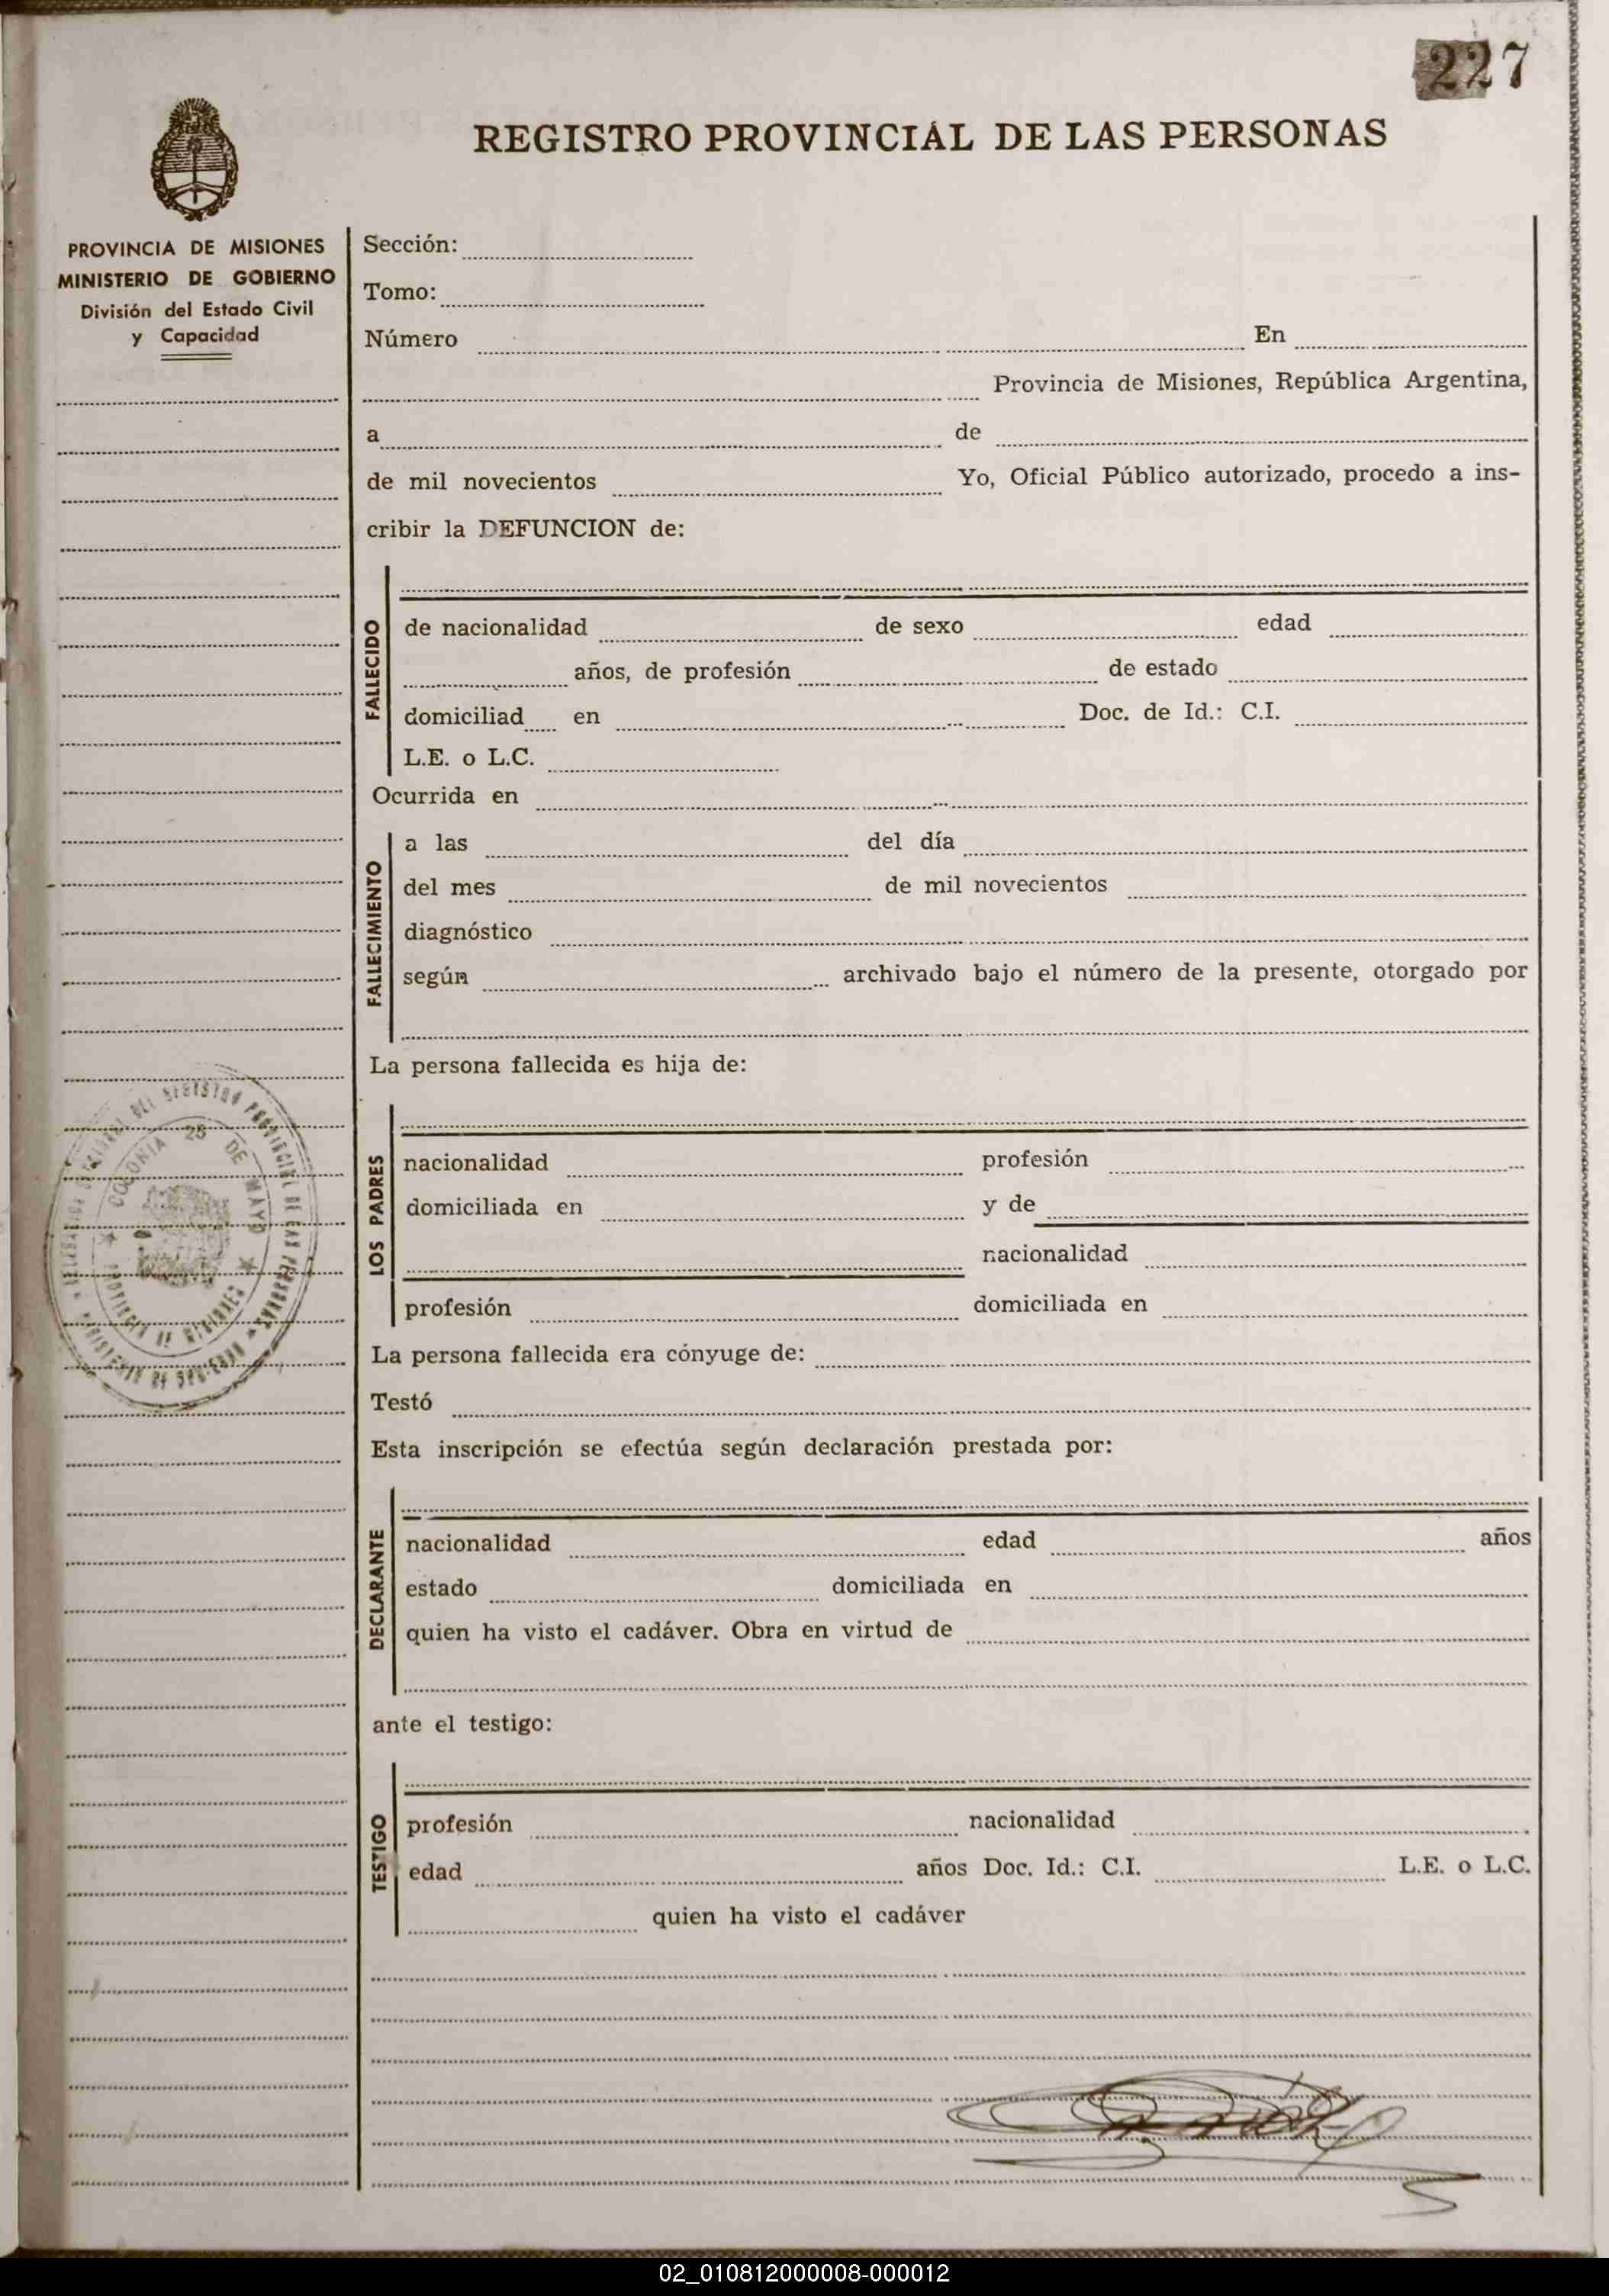 227
REGISTRO PROVINCIAL DE LAS PERSONAS
PROVINCIA DE MISIONES
MINISTERIO DE GOBIERNO
División del Estado Civil
y Capacidad
Sección:
Tomo:
Número En
Provincia de Misiones, República Argentina,
a de
de mil novecientos Yo, Oficial Público autorizado, procedo a ins-
cribir la DEFUNCION de:
FALLECIDO
de nacionalidad de sexo edad
años, de profesión de estado
domiciliad en Doc. de Id.: C.I.
L.E. o L.C.
Ocurrida en
FALLECIMIENTO
a las del día
del mes de mil novecientos
diagnóstico
según archivado bajo el número de la presente, otorgado por
La persona fallecida es hija de:
LOS PADRES
nacionalidad profesión
domiciliada en y de
nacionalidad
profesión domiciliada en
La persona fallecida era cónyuge de:
Testó
Esta inscripción se efectúa según declaración prestada por:
DECLARANTE
nacionalidad edad años
estado domiciliada en
quien ha visto el cadáver. Obra en virtud de
ante el testigo:
TESTIGO
profesión nacionalidad
edad años Doc. Id.: C.I. L.E. o L.C.
quien ha visto el cadáver
DEL REGISTRO PROVINCIAL DE LAS PERSONAS
COLONIA 25 DE MAYO
PROVINCIA DE MISIONES
MINISTERIO DE GOBIERNO
02_010812000008-000012